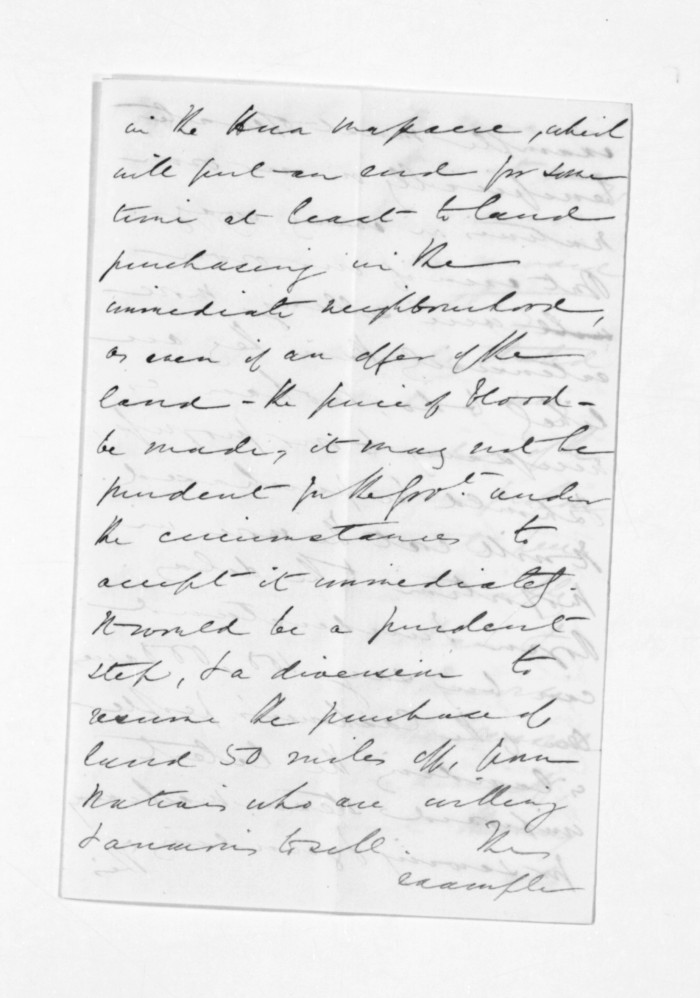 in the Hua massacre, which
will put an end for some
time at least to land
purchasing in the
immediate neighbourhood,
as even if an offer of the
land - the price of blood -
be made, it may not be
prudent for the Govt. under
the circumstances to
accept it immediately.
It would be a prudent
step, & a diversion to
resume the purchase of
land 50 miles off, from
Natives who are willing
& anxious to sell. The
example